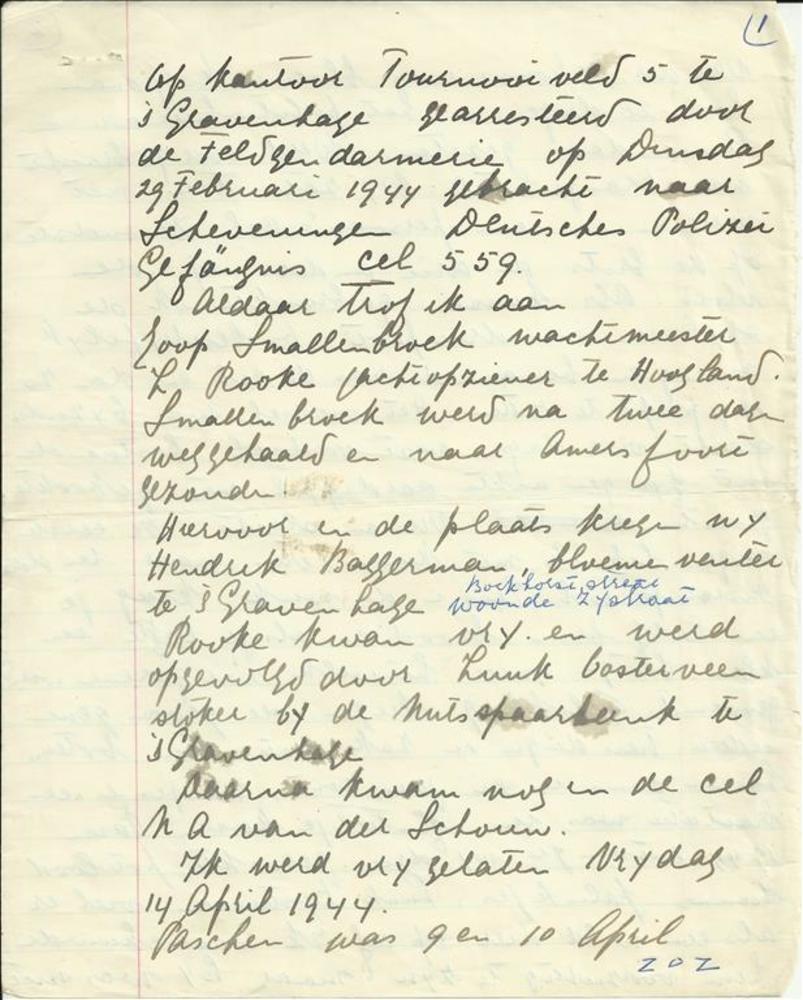 1
Op kantoor Tournooiveld 5 te
's Gravenhage gearresteerd door
de Feldgendarmerie op Dinsdag
29 Februari 1944 gebracht naar
Scheveningen Deutsches Polizei
Gefängnis cel 559.
Aldaar trof ik aan
Joop Smallenbroek wachtmeester
L. Rooke jachtopziener te Hoogland.
Smallenbroek werd na twee dagen
weggehaald en naar Amersfoort
gezonden
Hiervoor in de plaats kregen wy
Hendrik Baggerman, bloemenventer
te 's Gravenhage woonde Zystraat
Bockhorststraat
Rooke kwam vry. en werd
opgevolgd door Luuk Oosterveen
stoker by de Nutsspaarbank te
's Gravenhage
Daarna kwam nog in de cel
N A van der Schouw.
Ik werd vry gelaten Vrydag
14 April 1944.
Paschen was 9 en 10 April
ZOZ